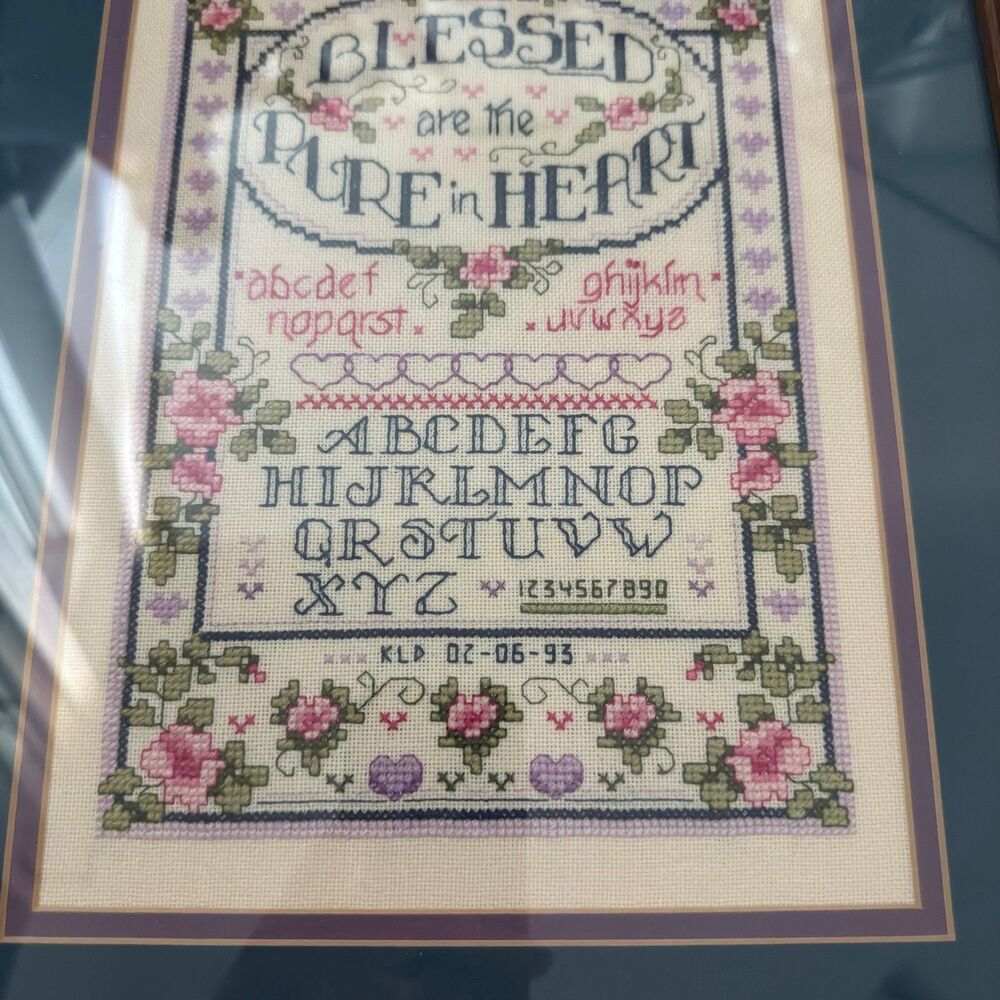 BLESSED
are the
PURE in HEART
abcdef ghijklm
nopqrst uvwxyz
ABCDEFG
HIJKLMNOP
QRSTUVW
XYZ 1234567890
KLD 02-06-93